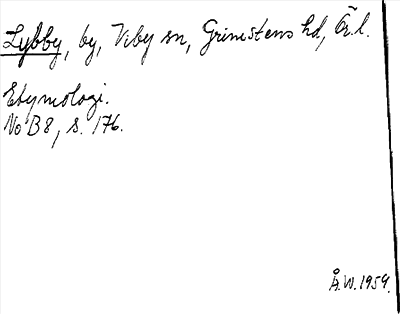 Lybby, by, Viby sn, Grimstens hd, Ör. l.
Etymologi.
NoB 8, s. 176.
Å.W. 1959.